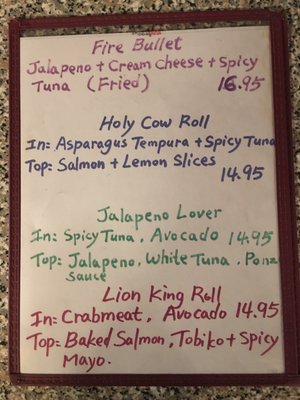 Fire Bullet
Jalapeno + Cream Cheese + Spicy
Tuna (Fried) 16.95
Holy Cow Roll
In: Asparagus Tempura + Spicy Tuna
Top: Salmon + Lemon Slices
14.95
Jalapeno Lover
In: Spicy Tuna, Avocado 14.95
Top: Jalapeno, White Tuna, Ponz
Sauce
Lion King Roll
In: Crabmeat, Avocado 14.95
Top: Baked Salmon, Tobiko + Spicy
Mayo.